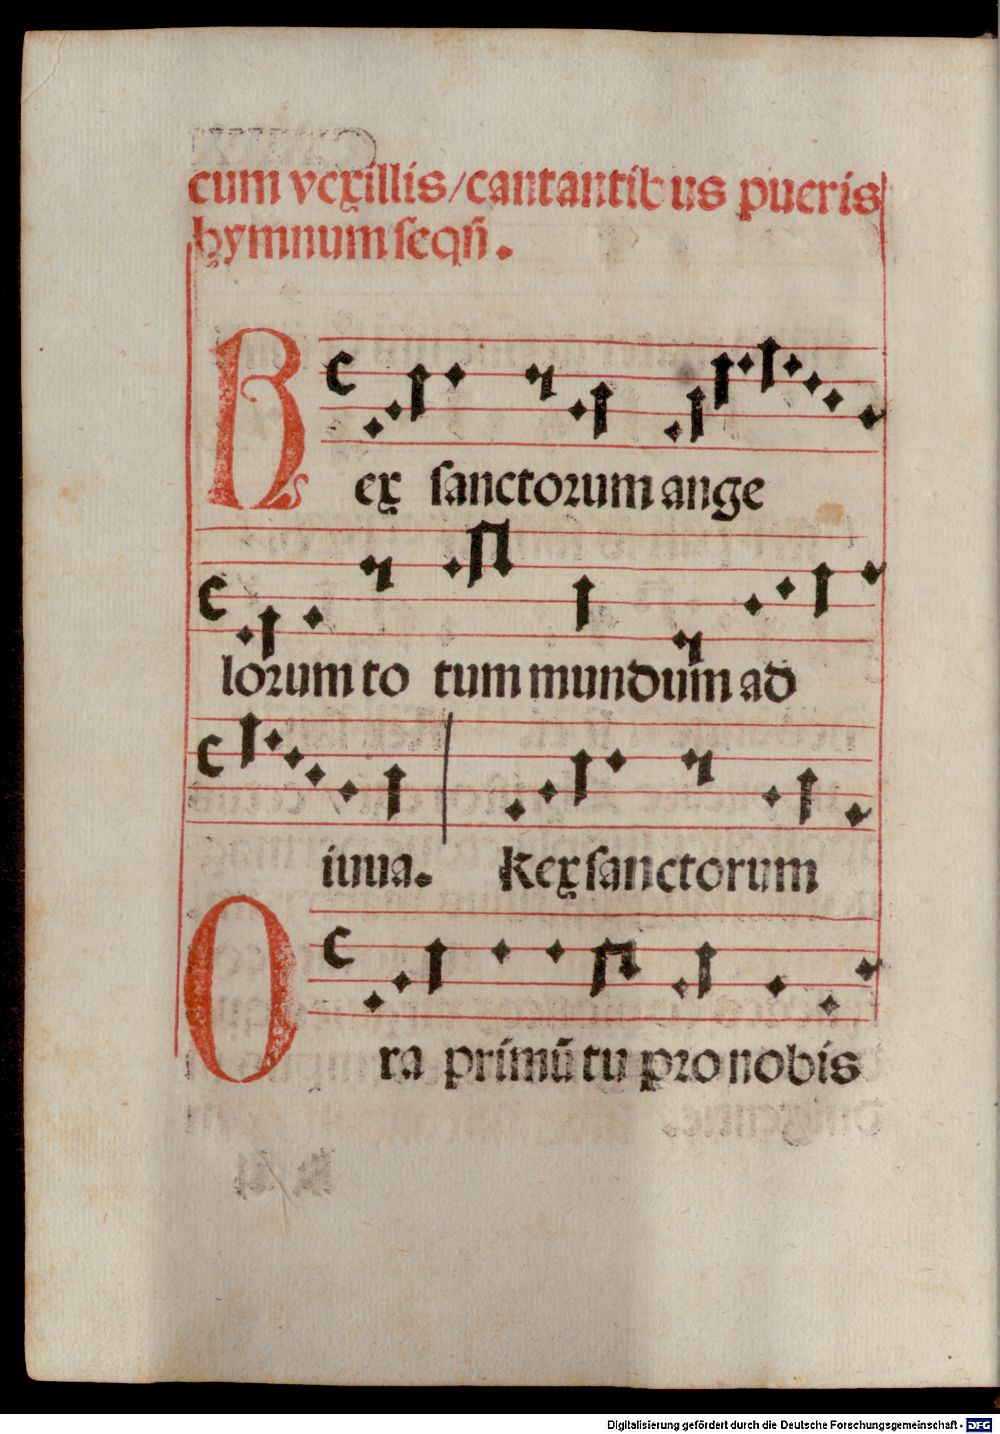 cum vexillis/cantantibus pueris
hymnum seqn̄.
Rex sanctorum ange
lorum to tum mundum ad
iuua. Rex sanctorum
Ora primū tu pro nobis
Digitalisierung gefördert durch die Deutsche Forschungsgemeinschaft - DFG